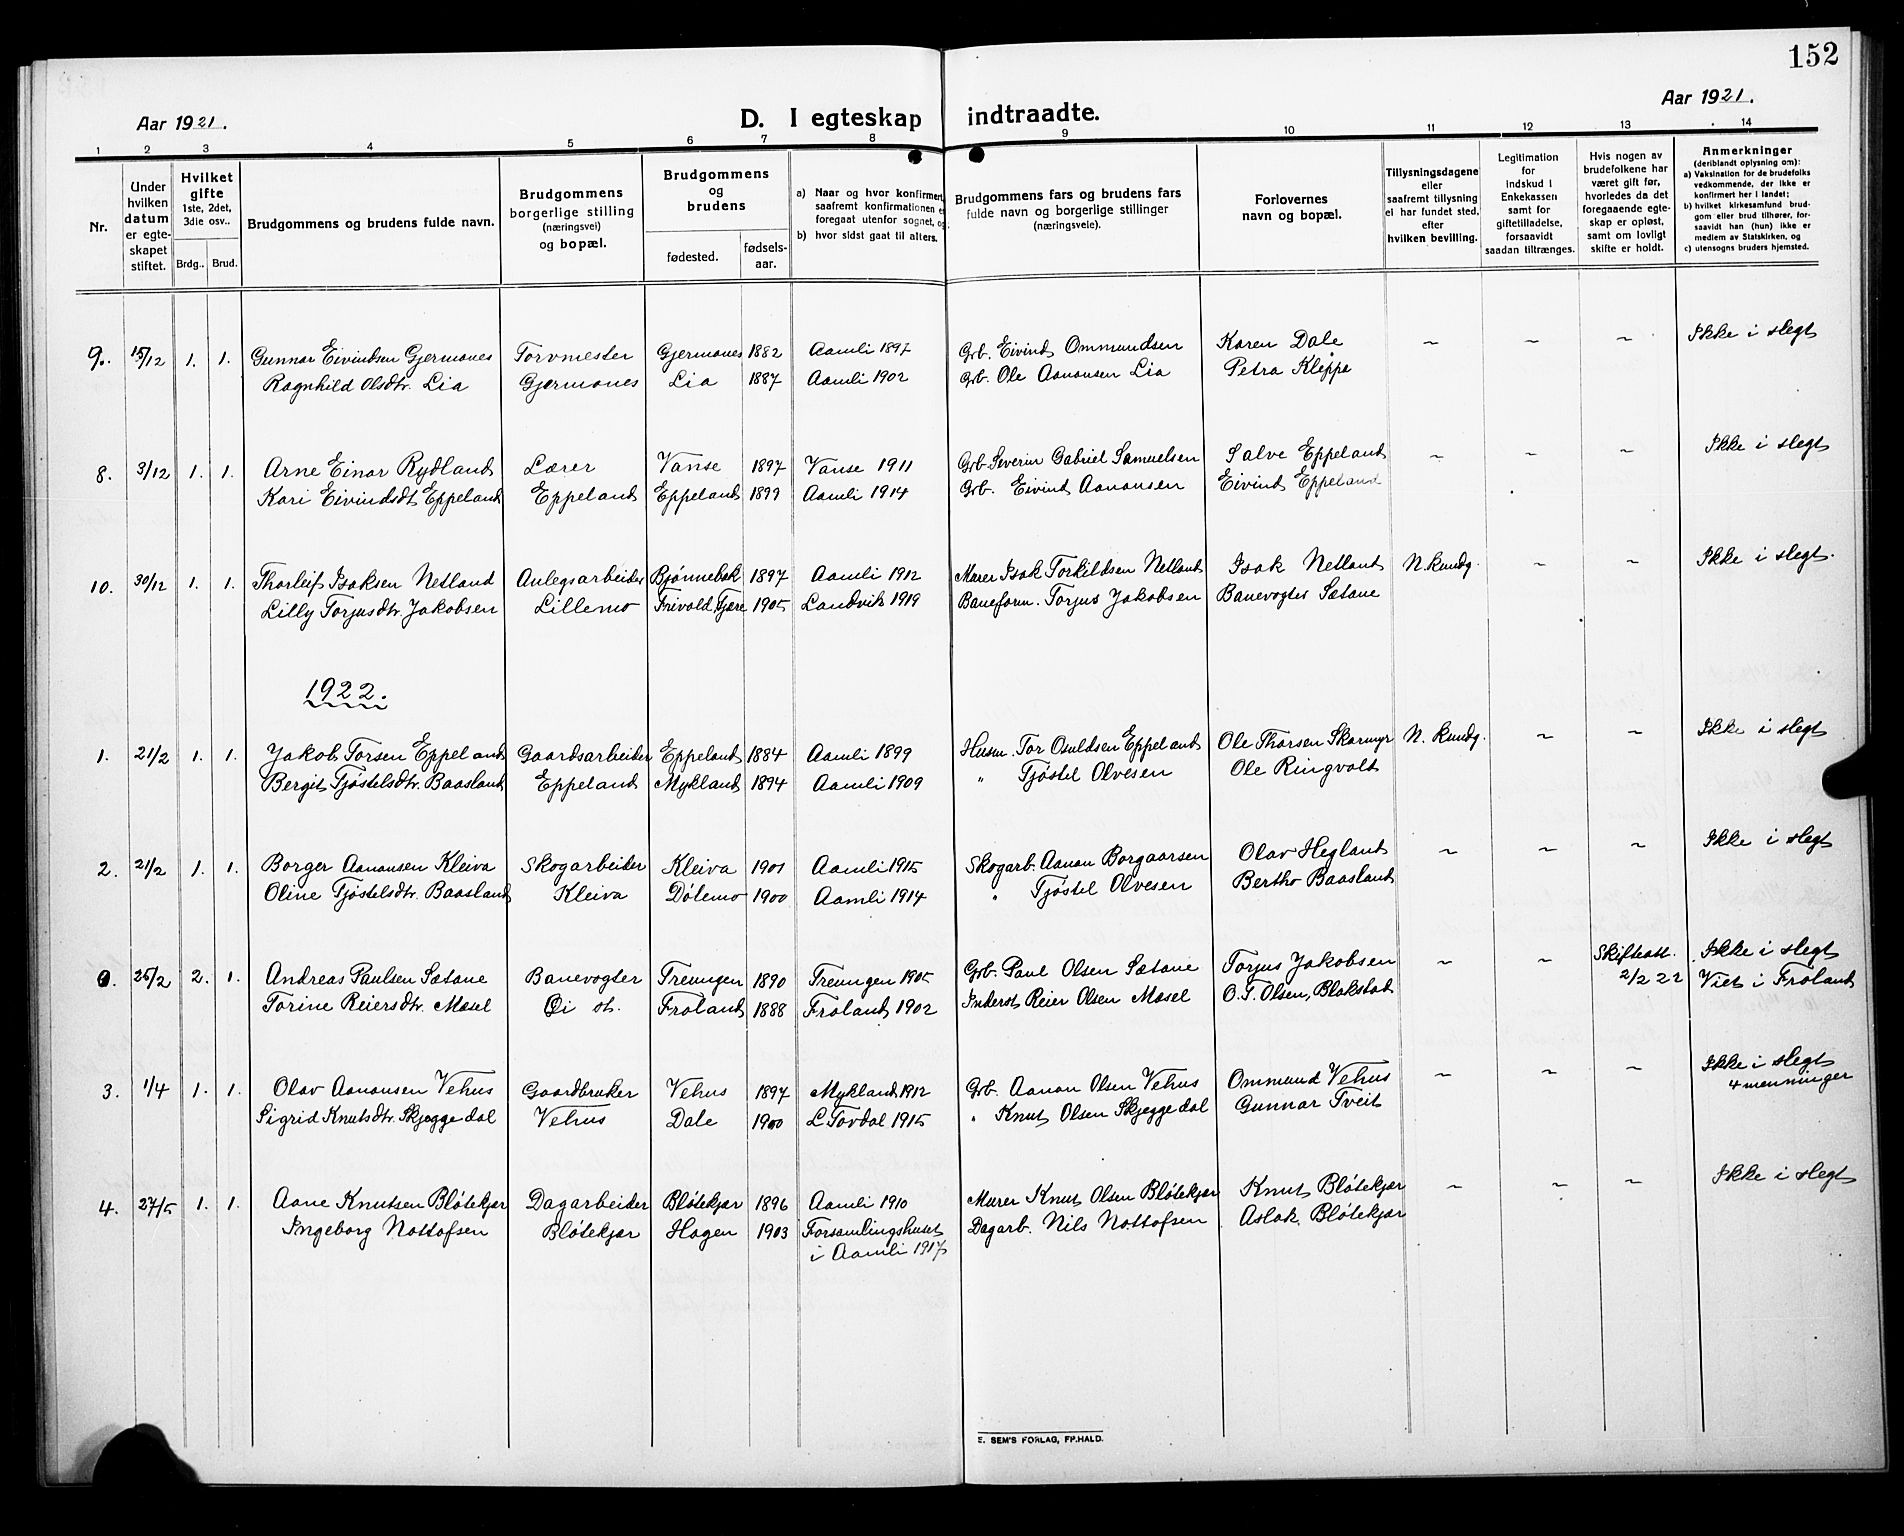 152
Aar 1921.
D. I egteskap indtraadte.
Aar 1921.
1 2 3 4 5 6 7 8 9 10 11 12 13 14
Nr.
Under hvilken datum er egteskapet stiftet.
Hvilket gifte 1ste, 2det, 3die osv..
Brdg. Brud.
Brudgommens og brudens fulde navn.
Brudgommens borgerlige stilling (næringsvei) og bopæl.
Brudgommens og brudens
fødested. fødselsaar.
a) Naar og hvor konfirmert, saafremt konfirmationen er foregaat utenfor sognet, og
b) hvor sidst gaat til alters.
Brudgommens fars og brudens fars fulde navn og borgerlige stillinger (næringsveie).
Forlovernes navn og bopæl.
Tillysningsdagene eller saafremt tillysning ei har fundet sted, efter hvilken bevilling.
Legitimation for indskud i Enkekassen samt for giftetilladelse, forsaavidt saadan tiltrænges.
Hvis nogen av brudefolkene har været gift før, hvorledes da det foregaaende egteskap er opløst, samt om lovligt skifte er holdt.
Anmerkninger (deriblandt oplysning om):
a) Vaksination for de brudefolks vedkommende, der ikke er konfirmert her i landet;
b) hvilket kirkesamfund brudgom eller brud tilhører, forsaavidt han (hun) ikke er medlem av Statskirken, og
c) utensogns bruders hjemsted.
9. 15/12 1. 1. Gunnar Eivindsen Gjermones Torvmester Gjermones 1882 Aamli 1897 Grb. Eivind Ommundsen Karen Dale ~ ~ ~ Ikke i slegt
Ragnhild Olsdtr. Lia Gjermones Lia 1887 Aamli 1902 Grb. Ole Aanonsen Lia Petra Kleppe
8. 3/12 1. 1. Arne Einar Rydland Lærer Vanse 1897 Vanse 1911 Grb. Severin Gabriel Samuelsen Salve Eppeland ~ ~ ~ Ikke i slegt
Kari Eivindsdt. Eppeland Eppeland Eppeland 1899 Aamli 1914 Grb. Eivind Aanonsen Eivind Eppeland
10. 30/12 1. 1. Thorleif Isaksen Netland Anlegsarbeider Bjønnebek 1897 Aamli 1912 Murer Isak Torkildsen Netland Isak Netland N. kundg. ~ ~ Ikke i slegt.
Lilly Torjusdtr. Jakobsen Lillemo Frivold, Fjære 1905 Landvik 1919 Baneform. Torjus Jakobsen Banevogter Sætane
1922.
1. 21/2 1. 1. Jakob Torsen Eppeland Gaardsarbeider Eppeland 1884 Aamli 1899 Husm. Tor Osuldsen Eppeland Ole Thorsen Skarmyr N. kundg. ~ ~ Ikke i slegt
Bergit Tjøstelsdtr. Baasland Eppeland Mykland 1894 Aamli 1909 " Tjøstel Olvesen Ole Ringvolt
2. 21/2 1. 1. Borger Aanonsen Kleiva Skogarbeider Kleiva 1901 Aamli 1915 Skogarb. Aanon Borgaarsen Olav Hegland ~ ~ ~ Ikke i slegt
Oline Tjøstelsdtr. Baasland Kleiva Dølemo 1900 Aamli 1914 " Tjøstel Olvesen Bertho Baasland
0. 25/2 2. 1. Andreas Paulsen Sætane Banevogter Treungen 1890 Treungen 1905 Grb. Paul Olsen Sætane Torjus Jakobsen ~ ~ Skifteatt. Ikke i slegt
Torine Reiersdtr. Mæsel Øi st. Froland 1888 Froland 1902 Inderst Reier Olsen Mæsel O. T. Olsen, Blakstad 2/2 22 Viet i Froland
3. 1/4 1. 1. Olav Aanonsen Vehus Gaardbruker Vehus 1897 Mykland 1912 Grb. Aanon Olsen Vehus Ommund Vehus ~ ~ ~ Ikke i slegt
4 menninger
Sigrid Knutsdtr. Skjeggedal Vehus Dale 1900 L. Tovdal 1915 " Knut Olsen Skjeggedal Gunnar Tveit
4. 27/5 1. 1. Aane Knutsen Bløtekjær Dagarbeider Bløtekjær 1896 Aamli 1910 Murer Knut Olsen Bløtekjær Knut Bløtekjær ~ ~ ~ Ikke i slegt
Ingeborg Nottofsen Bløtekjær Hagen 1903 Forsamlingshuset Dagarb. Nils Nottofsen Aslak Bløtekjær
i Aamli 1917
E. SEM'S FORLAG, FR.HALD.